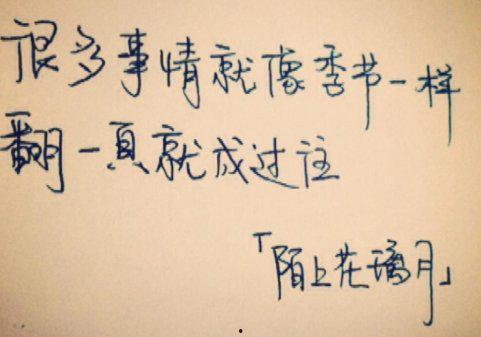 很多事情就像季节一样
翻一页就成过往
「陌上花璃月」